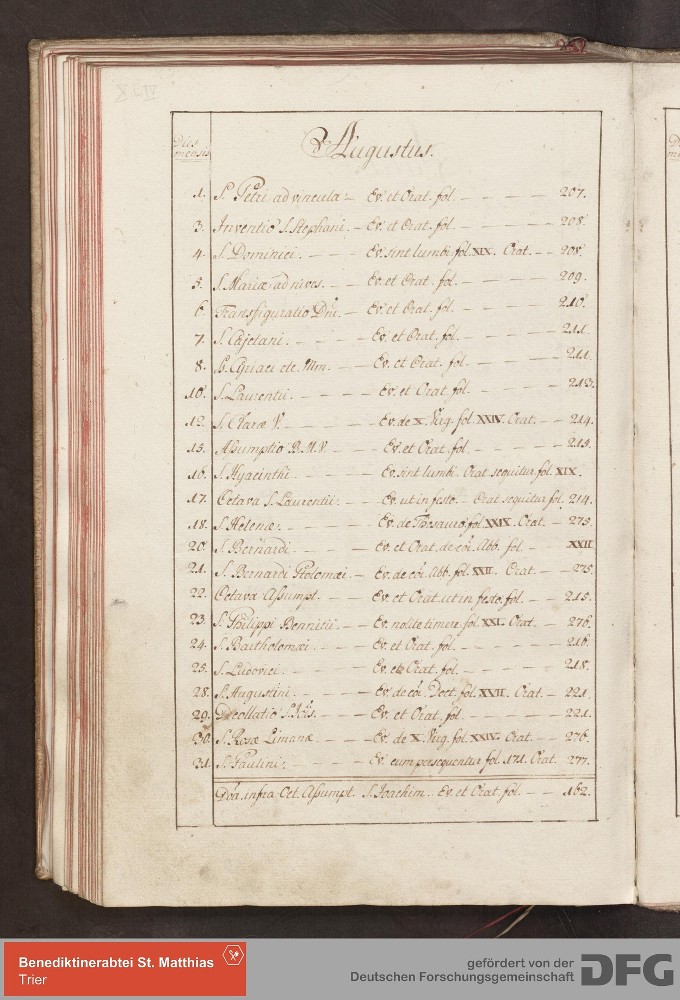 XLIV
Dies mensis
Augustus.
1. S. Petri ad vincula. — Ev. et Orat. fol. — — — — 207.
3. Inventio S. Stephani. — Ev. et Orat. fol. — — — — 208.
4. S. Dominici. — — — Ev. sint lumbi fol. XIX. Orat. — — 208.
5. S. Mariæ ad nives. — — Ev. et Orat. fol. — — — — 209.
6. Transfiguratio Dni. — Ev. et Orat. fol. — — — — 210.
7. S. Cajetani. — — — — Ev. et Orat. fol. — — — — 211.
8. Ss. Cyriaci etc. Mm. — — Ev. et Orat. fol. — — — — 211.
10. S. Laurentii. — — — — Ev. et Orat. fol. — — — — 213.
12. S. Claræ V. — — — — Ev. de X. Virg. fol. XXIV. Orat. — — 214.
15. Assumptio B.M.V. — — Ev. et Orat. fol. — — — — 215.
16. S. Hyacinthi. — — — — Ev. sint lumbi. Orat. sequitur fol. XIX.
17. Octava S. Laurentii. — — Ev. ut in festo. — Orat. sequitur fol. 214.
18. S. Helenæ. — — — — Ev. de Thesauro fol. XXIX. Orat. — 275.
20. S. Bernardi. — — — — Ev. et Orat. de coi. Abb. fol. — XXII
21. S. Bernardi Ptolomæi. — Ev. de coi. Abb. fol. XXII. Orat. — — 275.
22. Octava Assumpt. — — Ev. et Orat. ut in festo. fol. — — 215.
23. S. Philippi Bennitii. — — Ev. nolite timere fol. XXI. Orat. — 276.
24. S. Bartholomæi. — — Ev. et Orat. fol. — — — — 216.
25. S. Ludovici. — — — — Ev. et Orat. fol. — — — — 218.
28. S. Augustini. — — — — Ev. de coi. Doct. fol. XVII. Orat. — 221.
29. Decollatio S. Jois. — — — Ev. et Orat. fol. — — — — 221.
30. S. Rosæ Limanæ. — — Ev. de X. Virg. fol. XXIV. Orat. — — 276.
31. S. Paulini. — — — — Ev. cum persequentur fol. 171. Orat. 277.
Doa. infra Oct. Assumpt. S. Joachim. Ev. et Orat. fol. — — 162.
Benediktinerabtei St. Matthias
Trier
gefördert von der
Deutschen Forschungsgemeinschaft
DFG